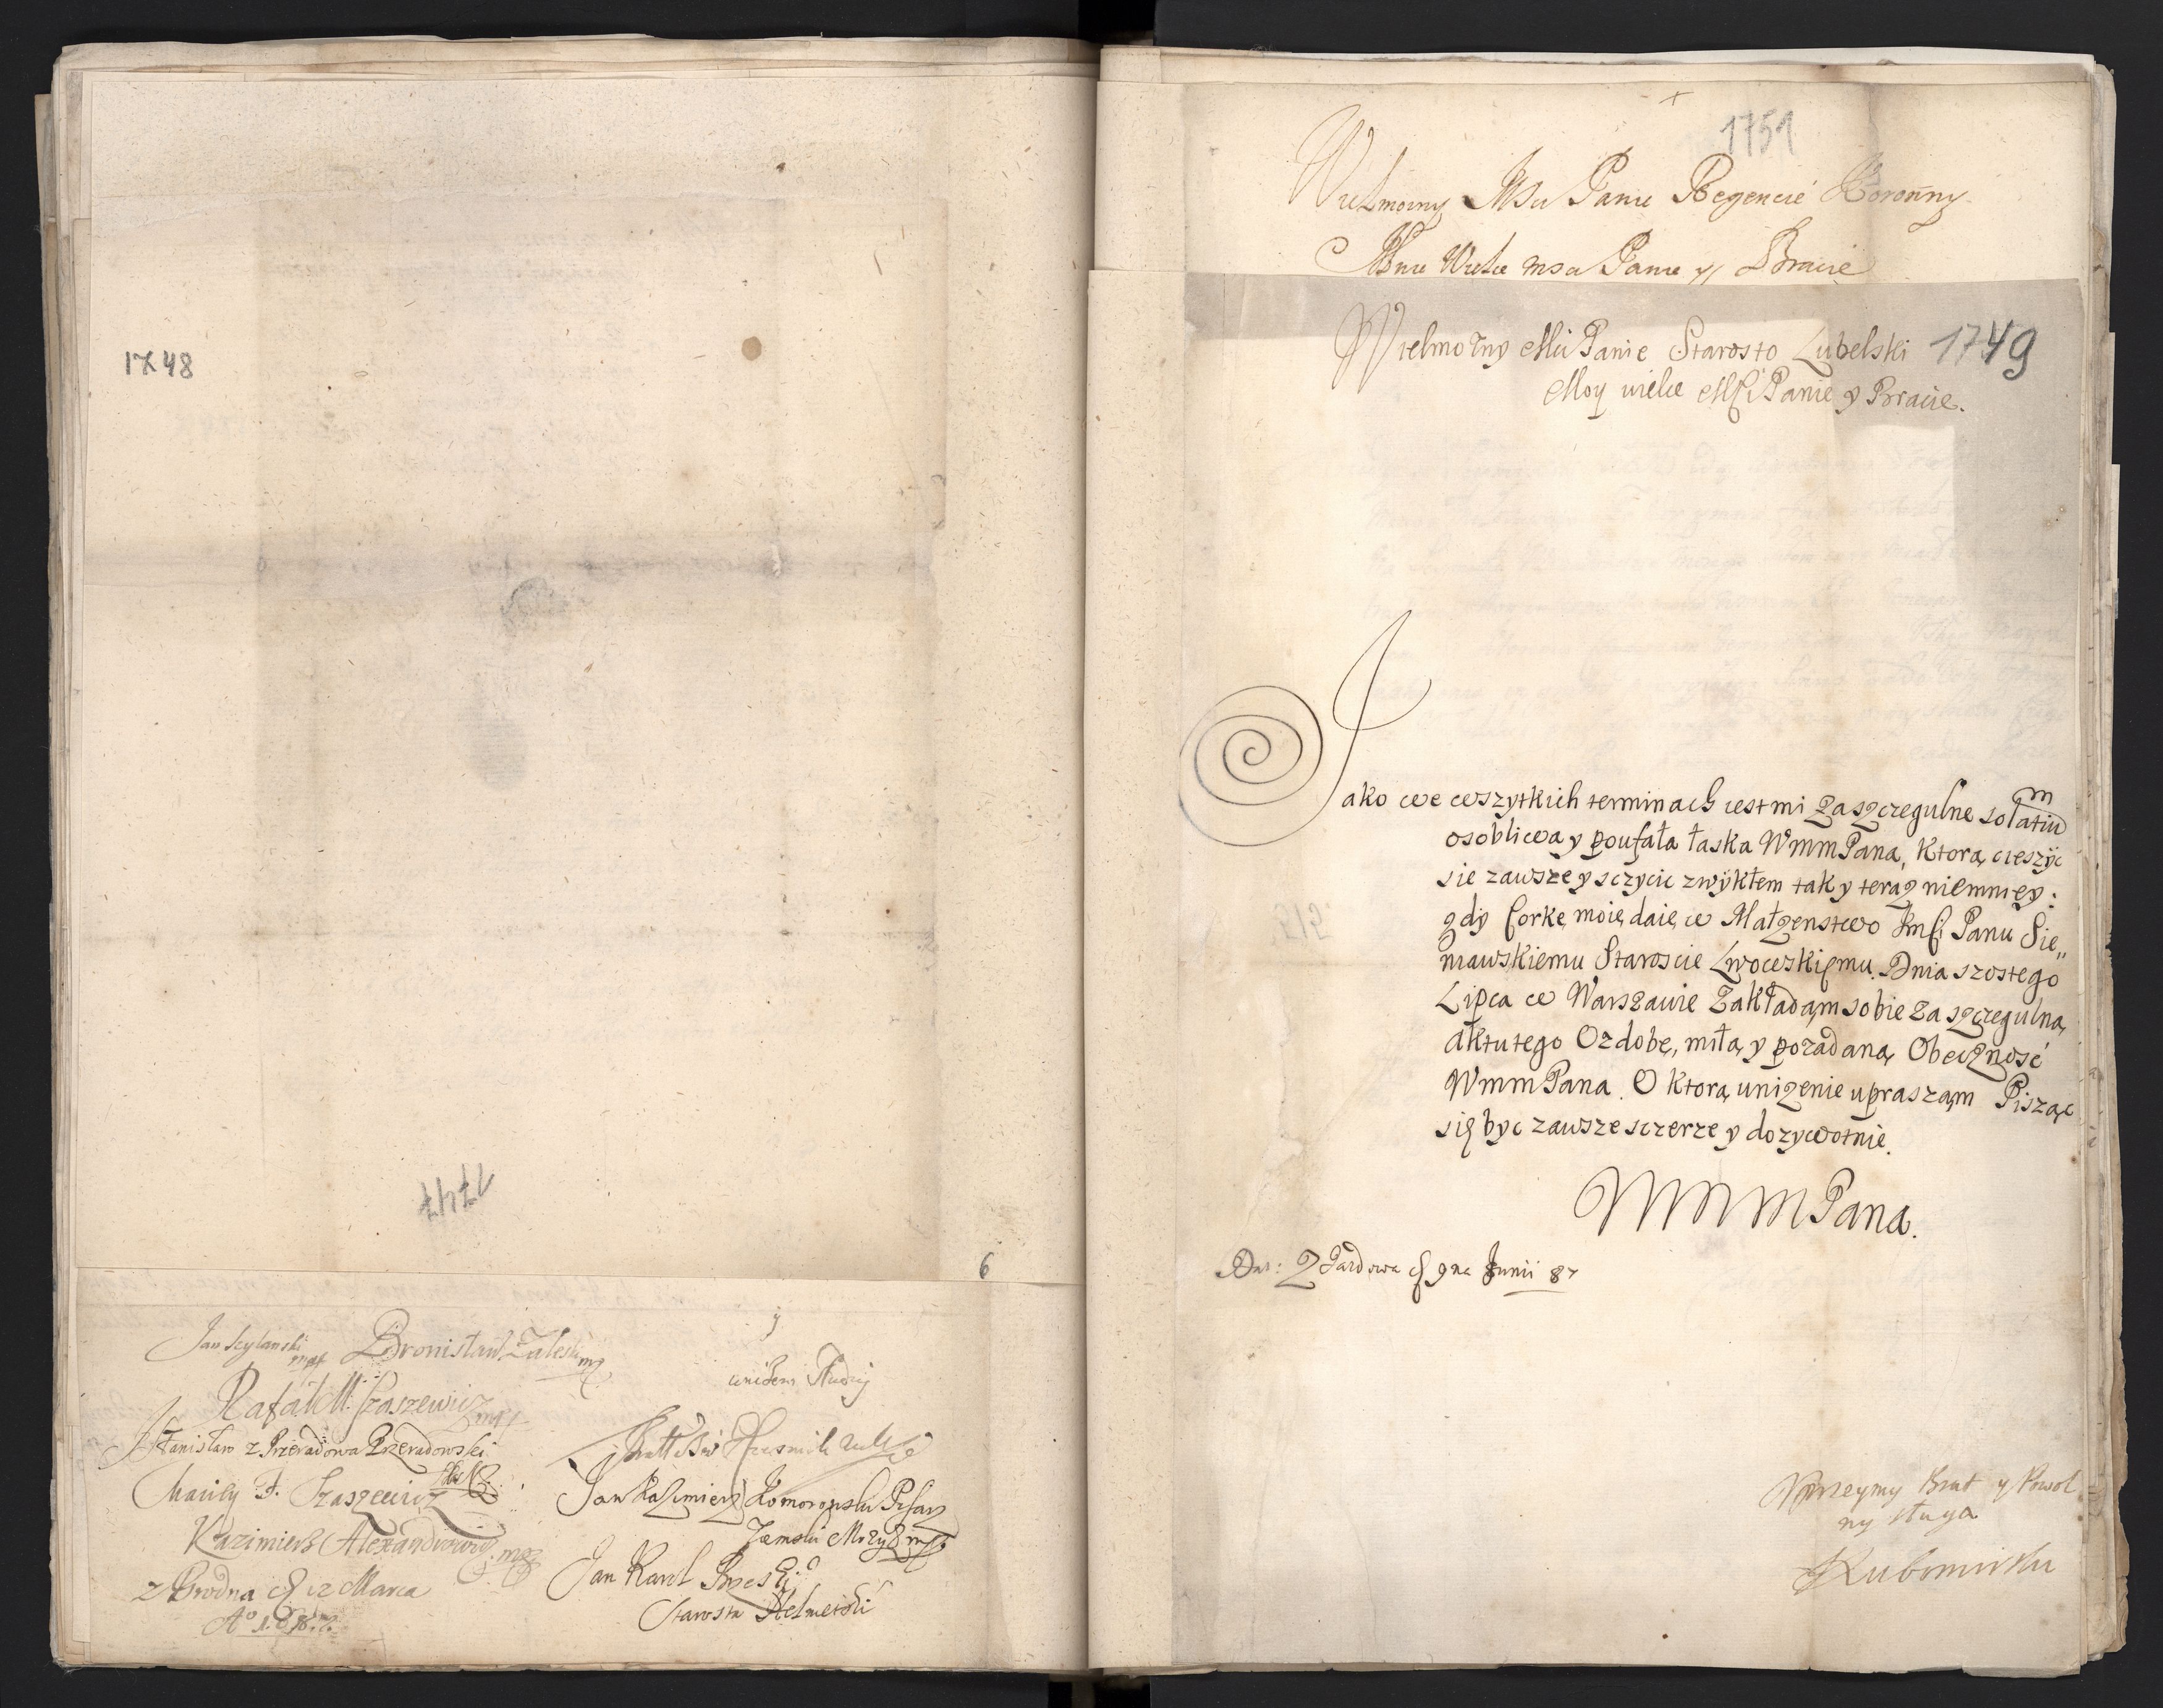 1748
1747
6
Jan Szylanski mpr Bronisław Zaleski mp
Rafał M. Szaszewicz mpr
Stanisław z Przeradowa Przeradowski
Maciey F. Szaszewicz
Kazimierz Alexandrowicz mp
z Grodna d. 12 Marca
Aº
y
unizeni Słudzy
Jan Kazimierz Komorowski Pisarz
Zemski mp
Jan Karol Brzeski
Starosta
1751
Wielmozny Msci Panie Regencie Koronny
Mnie Wielce msci Panie y Bracie
Wielmozny Mci Panie Starosto Lubelski 1749
Moy wielce Msci Panie y Bracie.
Jako we wszytkich terminach iest mi za szczegulne solatium
osobliwa y poufała łaska WmmPana, ktorą cieszyc
sie zawsze y sczycic zwykłem tak y teraz niemniey:
gdy Corkę moię daię w Małzenstwo Jmsci Panu Sie„
niawskiemu Staroscie Lwowskiemu. Dnia szostego
Lipca w Warszawie Zakładąm sobie za szczegulną
aktu tego Ozdobę, miłą y pozadaną Obecznosć
WmmPana. O ktorą unizenie uprasząm Pisząc
się byc zawsze sczerze y dozywotnie.
WMMPana.
Dat: d 9na Junii 87
Uprzeymy Brat y Powol
ny sługa
Lubomirski